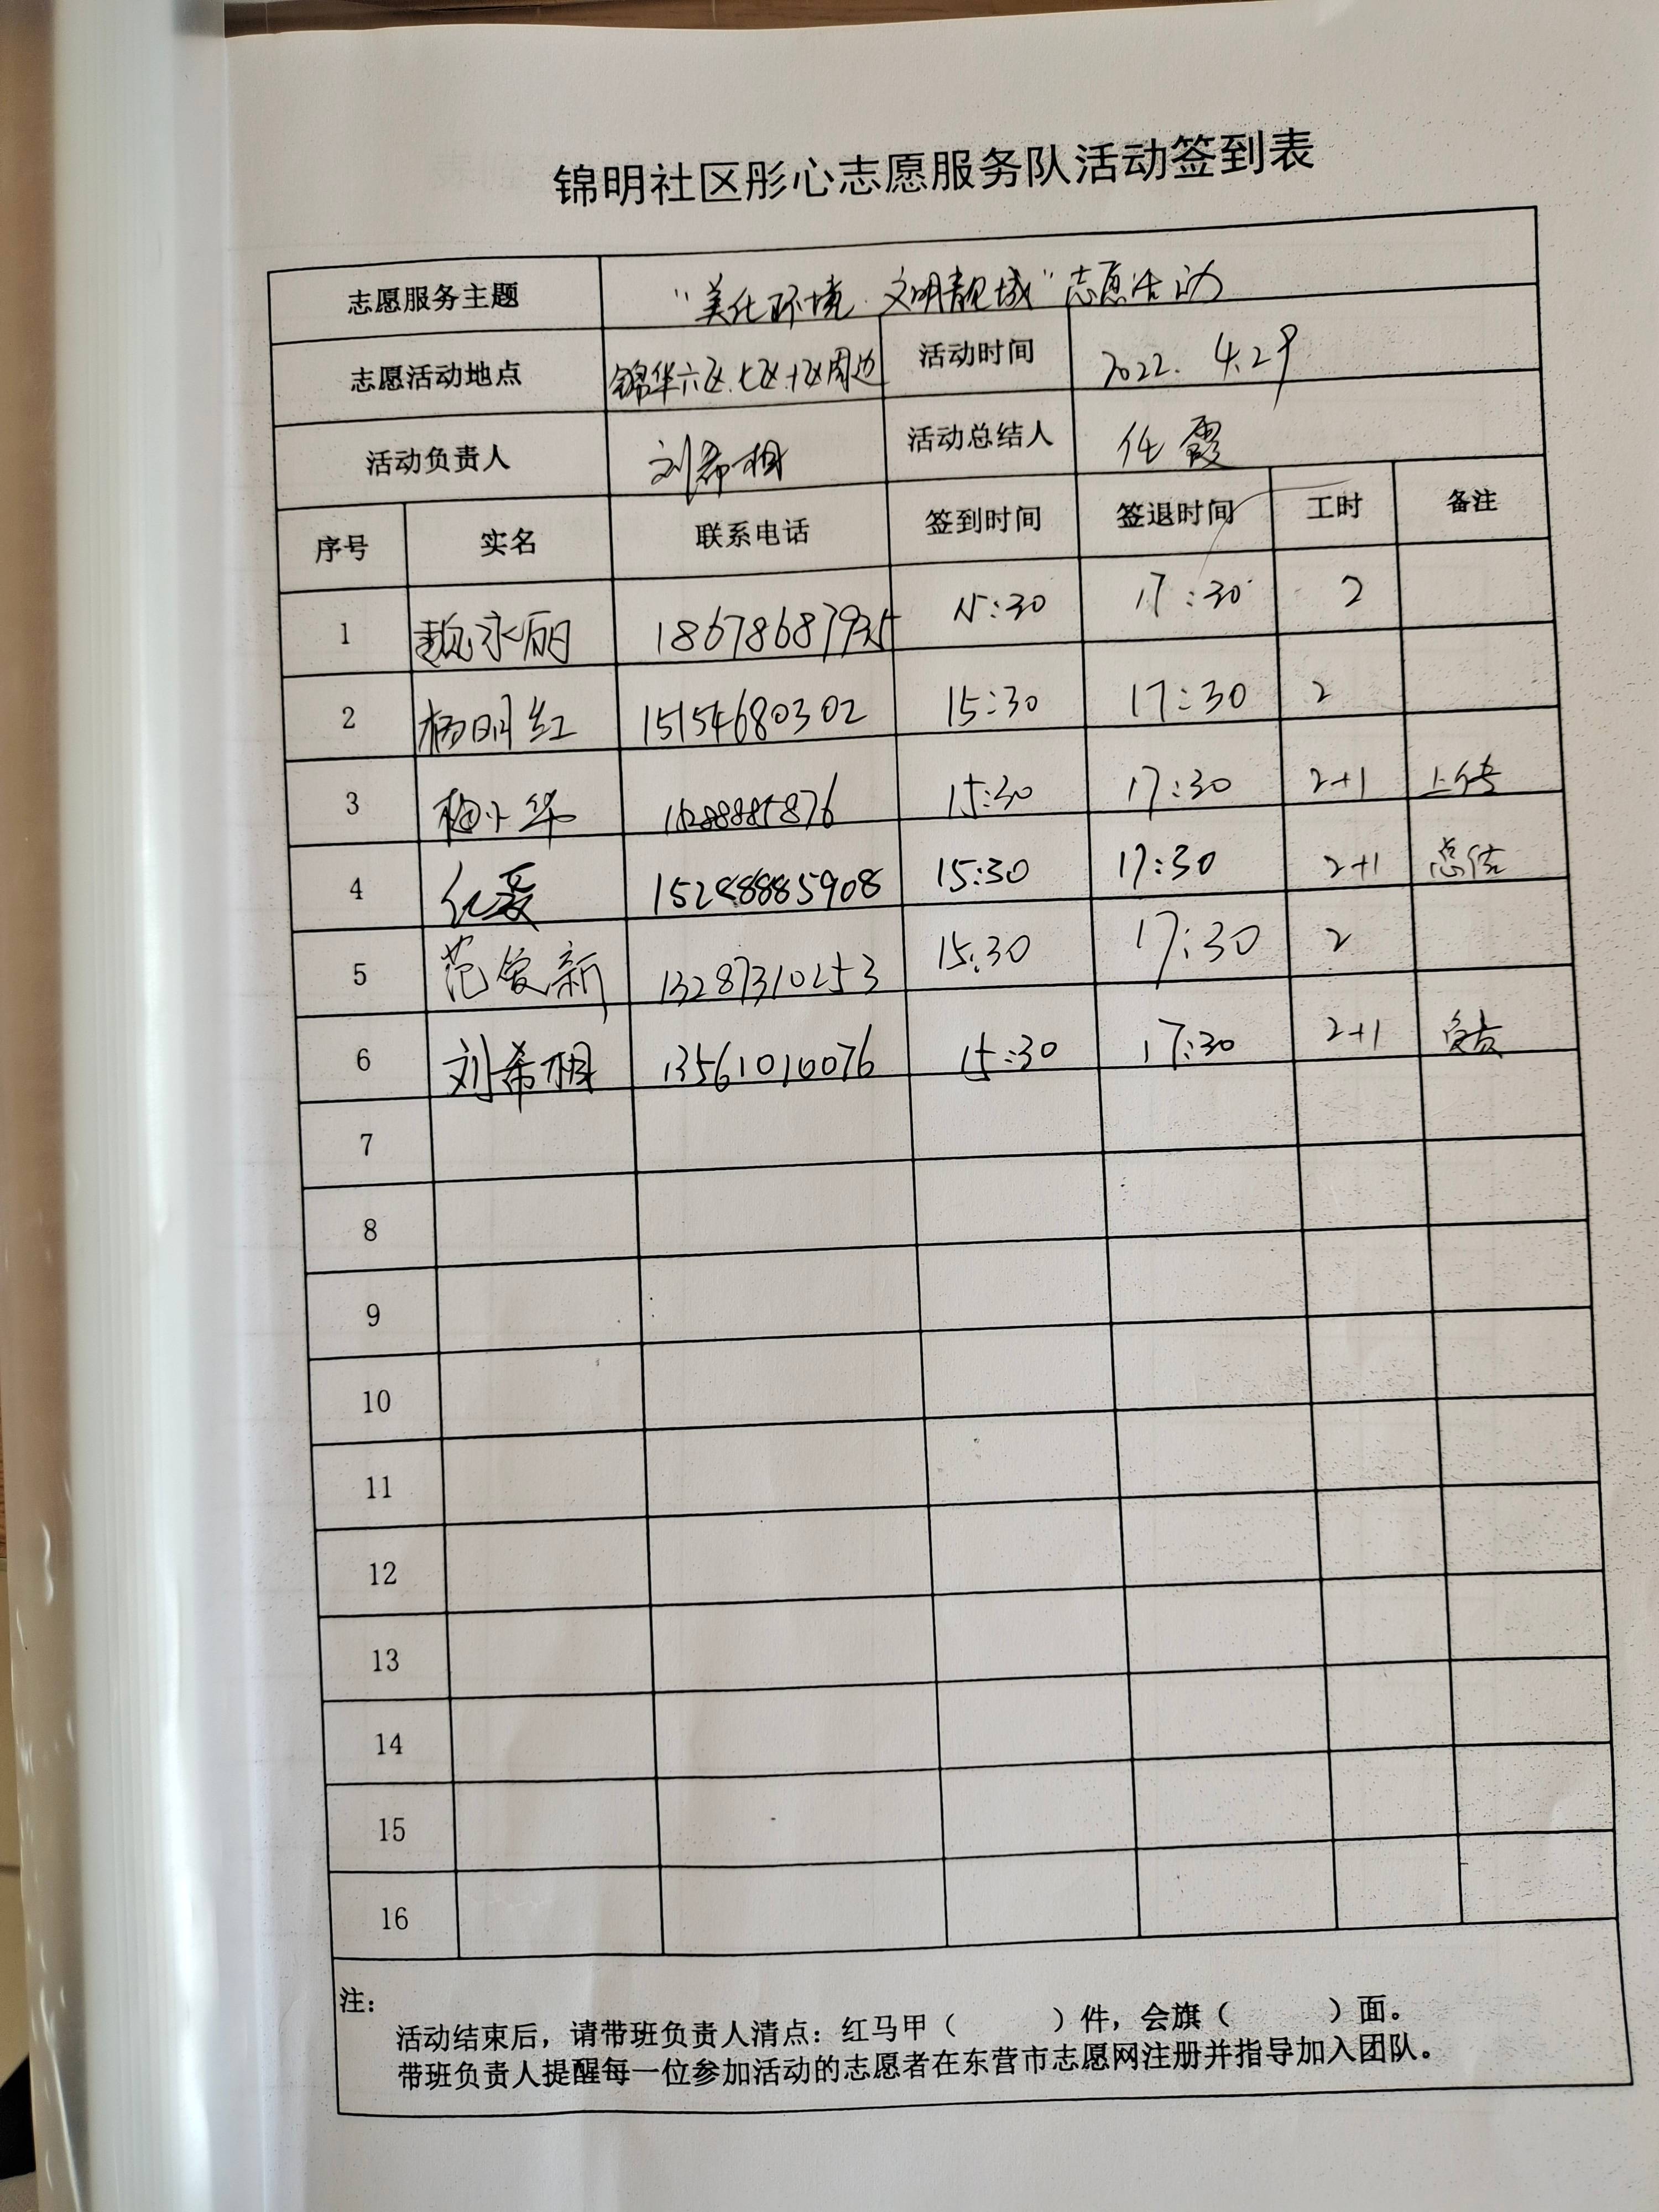 锦明社区彤心志愿服务队活动签到表
志愿服务主题 “美化环境 文明靓城”志愿活动
志愿活动地点 锦华六区.七区.十区周边 活动时间 2022. 4.29
活动负责人 刘希相 活动总结人 任霞
序号 实名 联系电话 签到时间 签退时间 工时 备注
1 魏永丽 18678687935 15:30 17:30 2
2 杨明红 15154680302 15:30 17:30 2
3 梅小华 15288885876 15:30 17:30 2+1 上传
4 任霞 15288885908 15:30 17:30 2+1 总结
5 范爱新 13287310253 15:30 17:30 2
6 刘希相 13561010076 15:30 17:30 2+1
7
8
9
10
11
12
13
14
15
16
注：
活动结束后，请带班负责人清点：红马甲（ ）件，会旗（ ）面。
带班负责人提醒每一位参加活动的志愿者在东营市志愿网注册并指导加入团队。